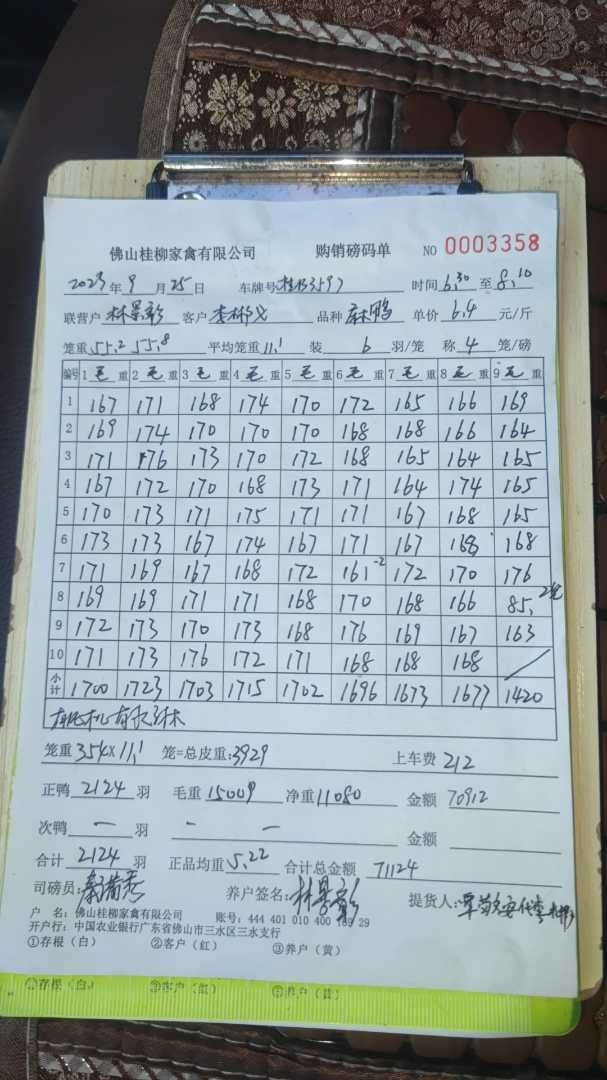 佛山桂柳家禽有限公司 购销磅码单 NO 0003358
2023年9月25日 车牌号 3597 时间6.30至8.10
联营户 林景彰 客户 李 品种 麻鸭 单价 6.4 元/斤
笼重55.2 55.8 平均笼重11.1 装 6 羽/笼 称 4 笼/磅
编号 1毛重 2毛重 3毛重 4毛重 5毛重 6毛重 7毛重 8毛重 9毛重
1 167 171 168 174 170 172 165 166 169
2 169 174 170 170 170 168 168 166 164
3 171 176 173 170 172 168 165 164 165
4 167 172 170 168 173 171 164 174 165
5 170 173 171 175 171 171 167 168 165
6 173 173 167 174 167 171 167 168 168
7 171 169 167 168 172 161-2 172 170 176
8 169 169 171 171 168 170 168 166 85, 2笼
9 172 173 170 173 168 176 169 167 163
10 171 173 176 172 171 168 168 168 /
小计 1700 1723 1703 1715 1702 1696 1673 1677 1420
笼重354×11.1 笼=总皮重:3929 上车费 212
正鸭 2124 羽 毛重 15009 净重11080 金额 70912
次鸭 — 羽 — — 金额
合计 2124 羽 正品均重5.22 合计总金额 71124
司磅员: 养户签名:林景彰 提货人:
户 名:佛山桂柳家禽有限公司 账号:444 401 010 400 29
开户行:中国农业银行广东省佛山市三水区三水支行
①存根(白) ②客户(红) ③养户(黄)
①存根(白) ②客户(红) ③养户(黄)